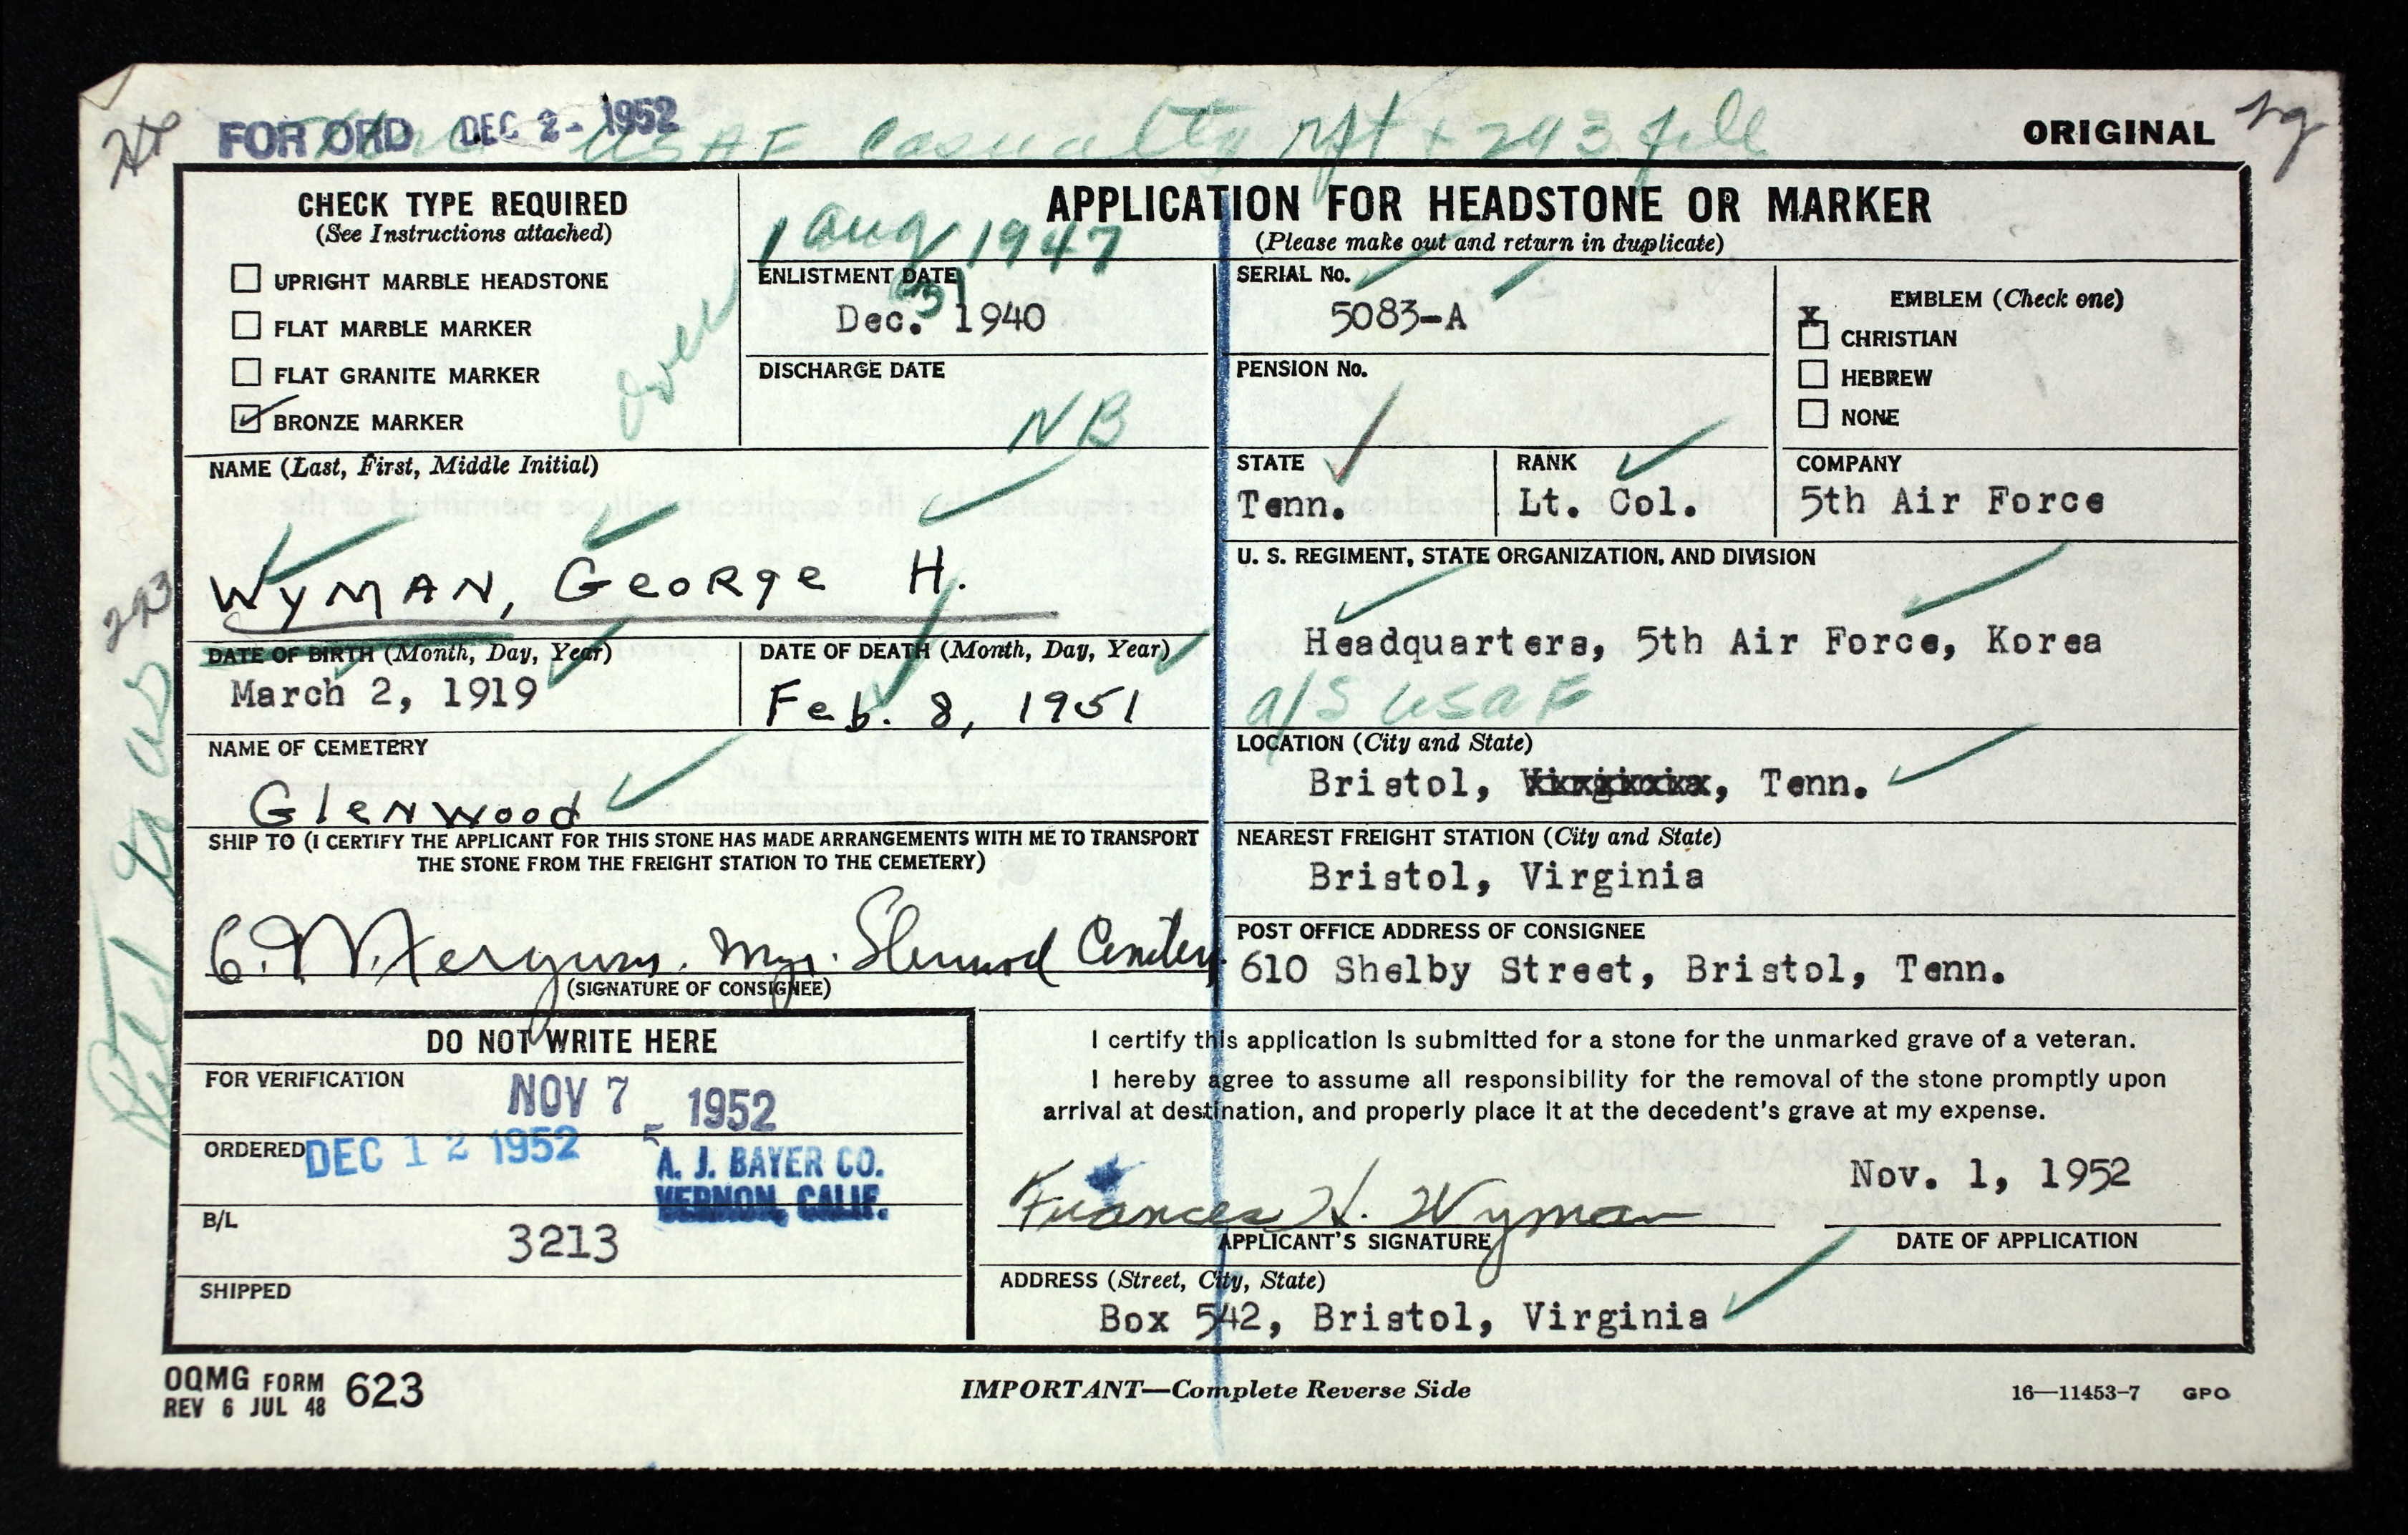 FOR ORD DEC 2 - 1952
USAF Casualty rpt + 293 file
ORIGINAL
CHECK TYPE REQUIRED
(See Instructions attached)
UPRIGHT MARBLE HEADSTONE
FLAT MARBLE MARKER
FLAT GRANITE MARKER
BRONZE MARKER
over
APPLICATION FOR HEADSTONE OR MARKER
(Please make out and return in duplicate)
1 Aug 1947
ENLISTMENT DATE
31
Dec. 1940
SERIAL No.
5083-A
EMBLEM (Check one)
x
CHRISTIAN
HEBREW
NONE
DISCHARGE DATE
NB
PENSION No.
NAME (Last, First, Middle Initial)
WYMAN, GEORGE H.
STATE
Tenn.
RANK
Lt. Col.
COMPANY
5th Air Force
U. S. REGIMENT, STATE ORGANIZATION, AND DIVISION
Headquarters, 5th Air Force, Korea
a/S USAF
293
DATE OF BIRTH (Month, Day, Year)
March 2, 1919
DATE OF DEATH (Month, Day, Year)
Feb. 8, 1951
NAME OF CEMETERY
Glenwood
LOCATION (City and State)
Bristol, Virginia, Tenn.
SHIP TO (I CERTIFY THE APPLICANT FOR THIS STONE HAS MADE ARRANGEMENTS WITH ME TO TRANSPORT
THE STONE FROM THE FREIGHT STATION TO THE CEMETERY)
NEAREST FREIGHT STATION (City and State)
Bristol, Virginia
Mgr. Glenwood Cemetery
(SIGNATURE OF CONSIGNEE)
POST OFFICE ADDRESS OF CONSIGNEE
610 Shelby Street, Bristol, Tenn.
DO NOT WRITE HERE
FOR VERIFICATION
NOV 7 1952
ORDERED DEC 12 1952
A. J. BAYER CO.
VERNON, CALIF.
B/L
3213
SHIPPED
I certify this application is submitted for a stone for the unmarked grave of a veteran.
I hereby agree to assume all responsibility for the removal of the stone promptly upon
arrival at destination, and properly place it at the decedent's grave at my expense.
Frances H. Wyman
Nov. 1, 1952
APPLICANT'S SIGNATURE
DATE OF APPLICATION
ADDRESS (Street, City, State)
Box 542, Bristol, Virginia
OQMG FORM 623
REV 6 JUL 48
IMPORTANT—Complete Reverse Side
16—11453-7 GPO